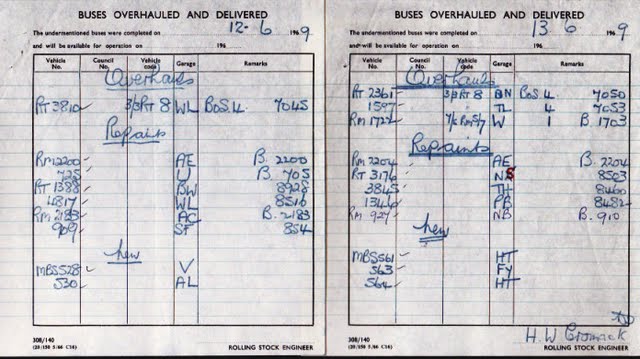 BUSES OVERHAULED AND DELIVERED
The undermentioned buses were completed on 12-6 1969
and will be available for operation on 196
Vehicle No. Council No. Vehicle code Garage Remarks
Overhauls
RT 3810 3/3RT 8 WL BoS 4. 7045
Repairs
RM 2200 AE B. 2200
725 U B. 705
RT 1388 BW 8928
4817 WL 8516
RM 2183 AC B. 2183
909 SF 854
New
MBS 528 V
530 AL
308/140
(20/150 5/66 C10)
ROLLING STOCK ENGINEER
BUSES OVERHAULED AND DELIVERED
The undermentioned buses were completed on 13 6 1969
and will be available for operation on 196
Vehicle No. Council No. Vehicle code Garage Remarks
Overhauls
RT 2361 3/3RT 8 BN BoS 4. 7050
1597 " TL 4 7053
RM 1722 7/2 RM5/7 W 1 B. 1703
Repairs
RM 2204 AE B. 2204
RT 3176 NS 8503
3845 TH 8460
1344 PB 8482
RM 927 NB B. 910
New
MBS 561 HT
563 FY
564 HT
308/140
(20/150 5/66 C10)
ROLLING STOCK ENGINEER
H. W.